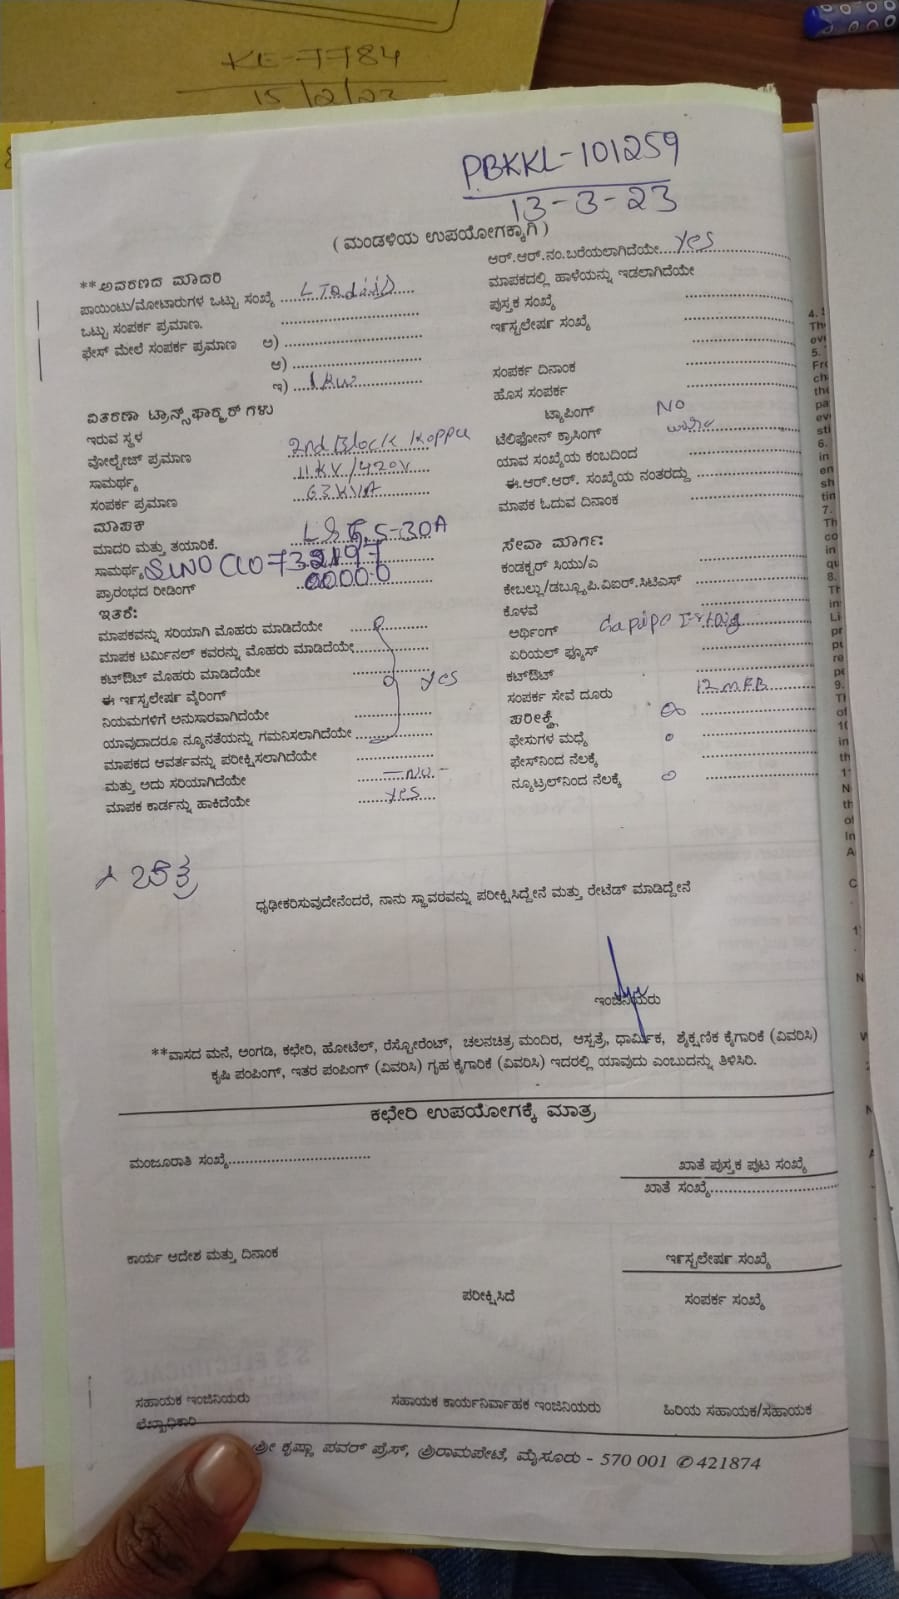 KE-7784
15/2/23
PBKKL-101259
13-3-23
(ಮಂಡಳಿಯ ಉಪಯೋಗಕ್ಕಾಗಿ)
**ಆವರಣದ ಮಾದರಿ
ಪಾಯಿಂಟು/ಮೋಟಾರುಗಳ ಒಟ್ಟು ಸಂಖ್ಯೆ
ಒಟ್ಟು ಸಂಪರ್ಕ ಪ್ರಮಾಣ.
ಫೇಸ್ ಮೇಲೆ ಸಂಪರ್ಕ ಪ್ರಮಾಣ ಅ)
ಆ)
ಇ) 1 KW
ವಿತರಣಾ ಟ್ರಾನ್ಸ್‌ಫಾರ್ಮರ್ ಗಳು
ಇರುವ ಸ್ಥಳ 2nd Block Koppa
ವೋಲ್ಟೇಜ್ ಪ್ರಮಾಣ 11KV/420V
ಸಾಮರ್ಥ್ಯ 63KVA
ಸಂಪರ್ಕ ಪ್ರಮಾಣ
ಮಾಪಕ
ಮಾದರಿ ಮತ್ತು ತಯಾರಿಕೆ. 5-30A
ಸಾಮರ್ಥ್ಯ
ಪ್ರಾರಂಭದ ರೀಡಿಂಗ್ 00000
ಇತರೆ:
ಮಾಪಕವನ್ನು ಸರಿಯಾಗಿ ಮೊಹರು ಮಾಡಿದೆಯೇ
ಮಾಪಕ ಟರ್ಮಿನಲ್ ಕವರನ್ನು ಮೊಹರು ಮಾಡಿದೆಯೇ
ಕಟ್‌ಔಟ್ ಮೊಹರು ಮಾಡಿದೆಯೇ yes
ಈ ಇನ್‌ಸ್ಟಲೇಷನ್ ವೈರಿಂಗ್
ನಿಯಮಗಳಿಗೆ ಅನುಸಾರವಾಗಿದೆಯೇ
ಯಾವುದಾದರೂ ನ್ಯೂನತೆಯನ್ನು ಗಮನಿಸಲಾಗಿದೆಯೇ
ಮಾಪಕದ ಆವರ್ತವನ್ನು ಪರೀಕ್ಷಿಸಲಾಗಿದೆಯೇ
ಮತ್ತು ಅದು ಸರಿಯಾಗಿದೆಯೇ -NO-
ಮಾಪಕ ಕಾರ್ಡನ್ನು ಹಾಕಿದೆಯೇ yes
ಆರ್.ಆರ್.ನಂ.ಬರೆಯಲಾಗಿದೆಯೇ yes
ಮಾಪಕದಲ್ಲಿ ಹಾಳೆಯನ್ನು ಇಡಲಾಗಿದೆಯೇ
ಪುಸ್ತಕ ಸಂಖ್ಯೆ
ಇನ್‌ಸ್ಟಲೇಷನ್ ಸಂಖ್ಯೆ
ಸಂಪರ್ಕ ದಿನಾಂಕ
ಹೊಸ ಸಂಪರ್ಕ
ಟ್ಯಾಪಿಂಗ್ NO
ಟೆಲಿಫೋನ್ ಕ್ರಾಸಿಂಗ್
ಯಾವ ಸಂಖ್ಯೆಯ ಕಂಬದಿಂದ
ಈ.ಆರ್.ಆರ್. ಸಂಖ್ಯೆಯ ನಂತರದ್ದು
ಮಾಪಕ ಓದುವ ದಿನಾಂಕ
ಸೇವಾ ಮಾರ್ಗ:
ಕಂಡಕ್ಟರ್ ಸಿಯು/ಎ
ಕೇಬಲ್ಲು/ಡಬ್ಲ್ಯೂ.ಪಿ.ವಿಐಆರ್.ಸಿಟಿಎಸ್
ಕೊಳವೆ
ಅರ್ಥಿಂಗ್
ಏರಿಯಲ್ ಫ್ಯೂಸ್
ಕಟ್‌ಔಟ್
ಸಂಪರ್ಕ ಸೇವೆ ದೂರು
ಪರೀಕ್ಷೆ
ಫೇಸುಗಳ ಮಧ್ಯೆ
ಫೇಸ್‌ನಿಂದ ನೆಲಕ್ಕೆ
ನ್ಯೂಟ್ರಲ್‌ನಿಂದ ನೆಲಕ್ಕೆ
ಧೃಢೀಕರಿಸುವುದೇನೆಂದರೆ, ನಾನು ಸ್ಥಾವರವನ್ನು ಪರೀಕ್ಷಿಸಿದ್ದೇನೆ ಮತ್ತು ರೇಟೆಡ್ ಮಾಡಿದ್ದೇನೆ
ಇಂಜಿನಿಯರು
**ವಾಸದ ಮನೆ, ಅಂಗಡಿ, ಕಛೇರಿ, ಹೋಟೆಲ್, ರೆಸ್ಟೋರೆಂಟ್, ಚಲನಚಿತ್ರ ಮಂದಿರ, ಆಸ್ಪತ್ರೆ, ಧಾರ್ಮಿಕ, ಶೈಕ್ಷಣಿಕ ಕೈಗಾರಿಕೆ (ವಿವರಿಸಿ)
ಕೃಷಿ ಪಂಪಿಂಗ್, ಇತರ ಪಂಪಿಂಗ್ (ವಿವರಿಸಿ) ಗೃಹ ಕೈಗಾರಿಕೆ (ವಿವರಿಸಿ) ಇದರಲ್ಲಿ ಯಾವುದು ಎಂಬುದನ್ನು ತಿಳಿಸಿರಿ.
ಕಛೇರಿ ಉಪಯೋಗಕ್ಕೆ ಮಾತ್ರ
ಮಂಜೂರಾತಿ ಸಂಖ್ಯೆ
ಖಾತೆ ಪುಸ್ತಕ ಪುಟ ಸಂಖ್ಯೆ
ಖಾತೆ ಸಂಖ್ಯೆ
ಕಾರ್ಯ ಆದೇಶ ಮತ್ತು ದಿನಾಂಕ
ಇನ್‌ಸ್ಟಲೇಷನ್ ಸಂಖ್ಯೆ
ಪರೀಕ್ಷಿಸಿದೆ
ಸಂಪರ್ಕ ಸಂಖ್ಯೆ
ಸಹಾಯಕ ಇಂಜಿನಿಯರು
ಸಹಾಯಕ ಕಾರ್ಯನಿರ್ವಾಹಕ ಇಂಜಿನಿಯರು
ಹಿರಿಯ ಸಹಾಯಕ/ಸಹಾಯಕ
ಲೆಖ್ಖಾಧಿಕಾರಿ
ಶ್ರೀ ಕೃಷ್ಣಾ ಪವರ್ ಪ್ರೆಸ್, ಶ್ರೀರಾಮಪೇಟೆ, ಮೈಸೂರು - 570 001 ✆ 421874